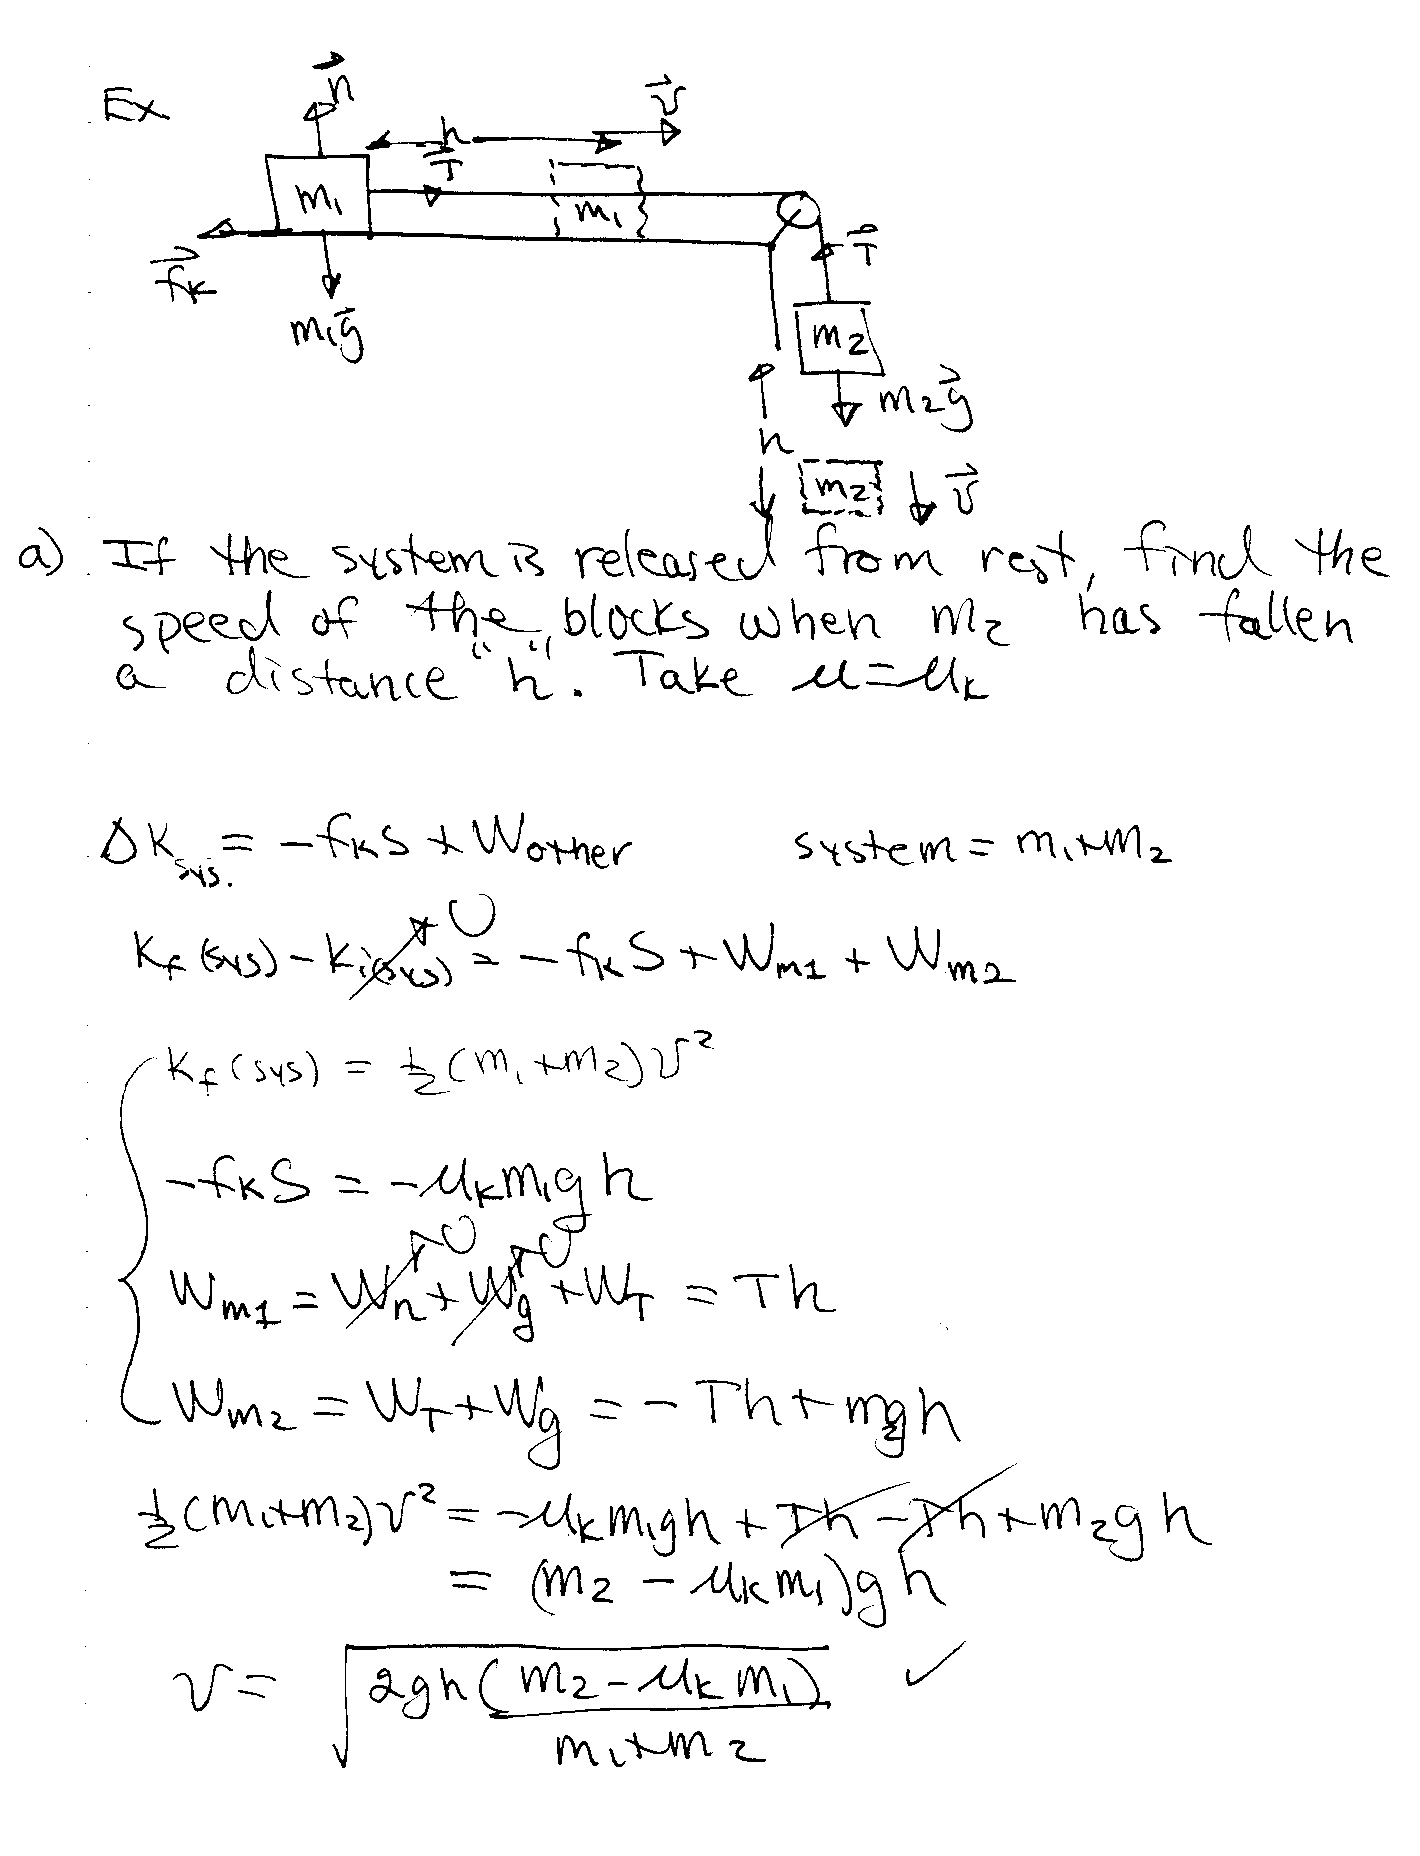 Ex
n
v
h
T
m₁
m₁
fₖ
T
m₁g
m₂
m₂g
h
m₂
v
a) If the system is released from rest, find the
speed of the blocks when m₂ has fallen
a distance "h". Take μ=μₖ
ΔK_sys. = -fₖS + Wother system = m₁+m₂
K_f(sys) - K_i(sys) 0 = -fₖS + W_m1 + W_m2
K_f(sys) = ½(m₁+m₂)v²
-fₖS = -μₖm₁gh
W_m1 = W_n 0 + W_g 0 + W_T = Th
W_m2 = W_T + W_g = -Th + m₂gh
½(m₁+m₂)v² = -μₖm₁gh + Th - Th + m₂gh
= (m₂ - μₖm₁)gh
v = √(2gh(m₂-μₖm₁)/(m₁+m₂)) ✓